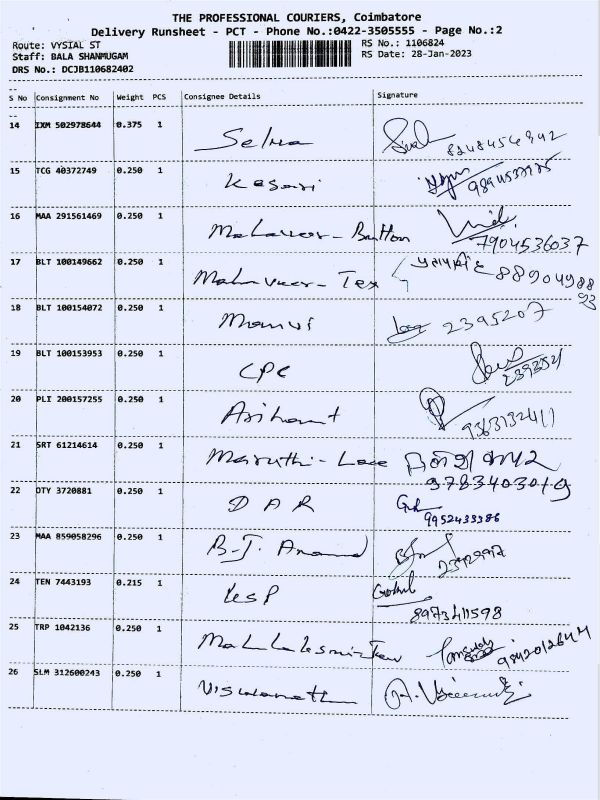 THE PROFESSIONAL COURIERS, Coimbatore
Delivery Runsheet - PCT - Phone No.:0422-3505555 - Page No.:2
Route: VYSIAL ST
Staff: BALA SHANMUGAM
DRS No.: DCJB110682402
RS No.: 1106824
RS Date: 28-Jan-2023
S No Consignment No Weight PCS Consignee Details Signature
14 IXM 502978644 0.375 1 Selma
15 TCG 40372749 0.250 1 Kesari
16 MAA 291561469 0.250 1 Mahaveer - Button 7904536037
17 BLT 100149662 0.250 1 Mahaveer - Tex 8890498893
18 BLT 100154072 0.250 1 2395207
19 BLT 100153953 0.250 1 CPC
20 PLI 200157255 0.250 1 Arihant 9363132411
21 SRT 61214614 0.250 1 Maruthi - Lace 9783403019
22 OTY 3720881 0.250 1 DAR 9952433386
23 MAA 859058296 0.250 1 B.J. Anand
24 TEN 7443193 0.215 1 KSP Gokul 8973411598
25 TRP 1042136 0.250 1 9842012644
26 SLM 312600243 0.250 1 Viswanath